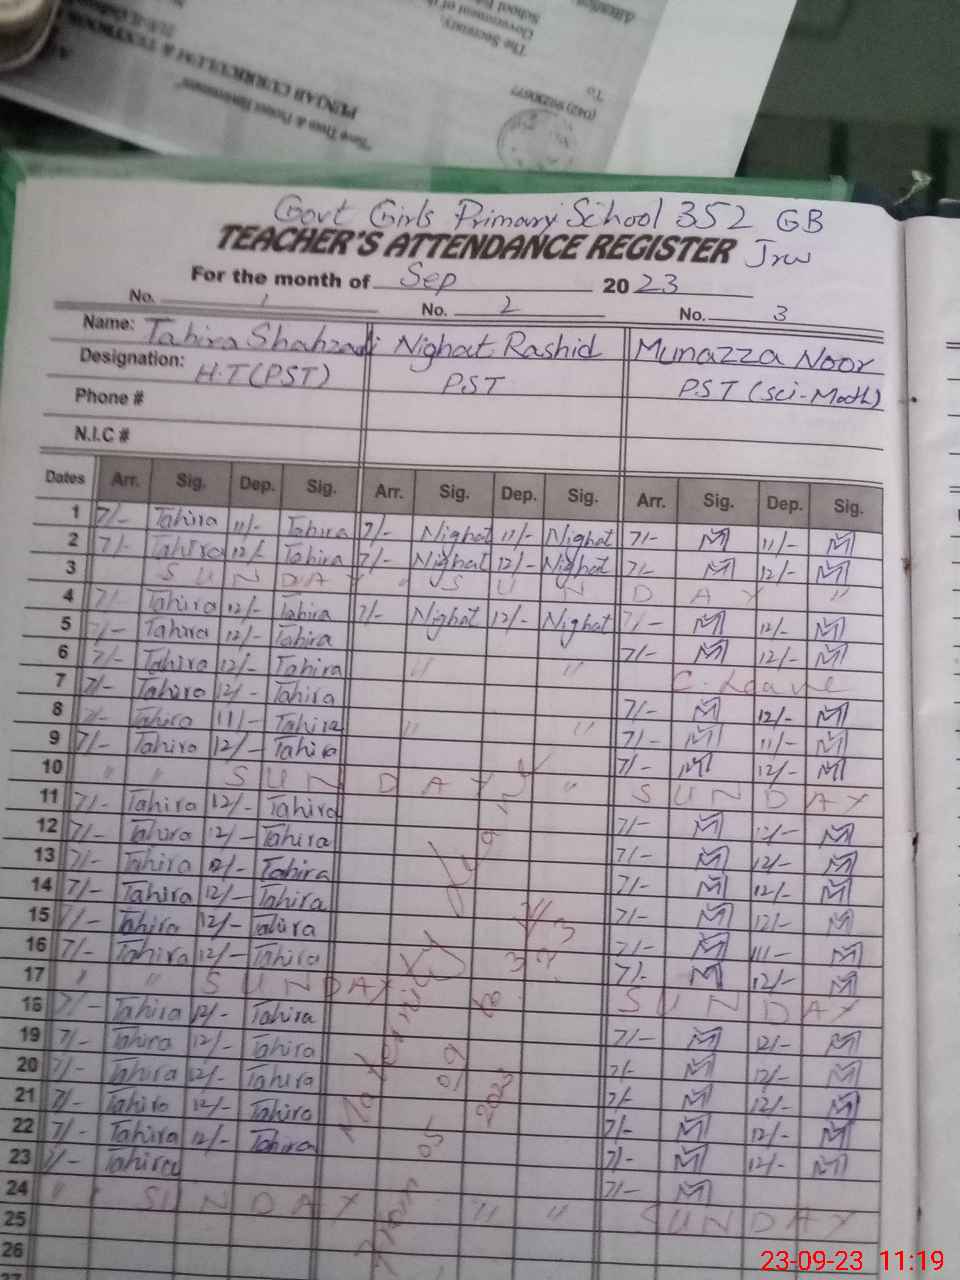 To
The Secretary,
Government of the
School
(042) 99230677
PUNJAB CURRICULUM & TEXTBOOK
Govt Girls Primary School 352 GB
TEACHER'S ATTENDANCE REGISTER Jrw
For the month of Sep 2023
No. 1 No. 2 No. 3
Name: Tahira Shahzadi Nighat Rashid Munazza Noor
Designation: H.T(PST) PST PST (Sci-Math)
Phone #
N.I.C #
Dates Arr. Sig. Dep. Sig. Arr. Sig. Dep. Sig. Arr. Sig. Dep. Sig.
1 7/- Tahira 11/- Tahira 7/- Nighat 11/- Nighat 7/- M 11/- M
2 7/- Tahira 12/- Tahira 7/- Nighat 12/- Nighat 7/- M 12/- M
3 SUNDAY " SUNDAY "
4 7/- Tahira 12/- Tahira 7/- Nighat 12/- Nighat 7/- M 12/- M
5 7/- Tahira 12/- Tahira 7/- M 12/- M
6 7/- Tahira 12/- Tahira " " C. Leave
7 7/- Tahira 12/- Tahira 7/- M 12/- M
8 7/- Tahira 11/- Tahira " " 7/- M 11/- M
9 7/- Tahira 12/- Tahira 7/- M 12/- M
10 " " SUNDAY " SUNDAY
11 7/- Tahira 12/- Tahira 7/- M 12/- M
12 7/- Tahira 12/- Tahira 7/- M 12/- M
13 7/- Tahira 12/- Tahira 7/- M 12/- M
14 7/- Tahira 12/- Tahira 7/- M 12/- M
15 7/- Tahira 12/- Tahira 7/- M 11/- M
16 7/- Tahira 12/- Tahira 7/- M 12/- M
17 " " SUNDAY SUNDAY
18 7/- Tahira 12/- Tahira 7/- M 12/- M
19 7/- Tahira 12/- Tahira 7/- M 12/- M
20 7/- Tahira 12/- Tahira 7/- M 12/- M
21 7/- Tahira 12/- Tahira 7/- M 12/- M
22 7/- Tahira 12/- Tahira 7/- M 12/- M
23 7/- Tahira 7/- M
24 " SUNDAY " " SUNDAY
25
26
27
Maternity Leave
From 05 09 2023 to
23-09-23 11:19